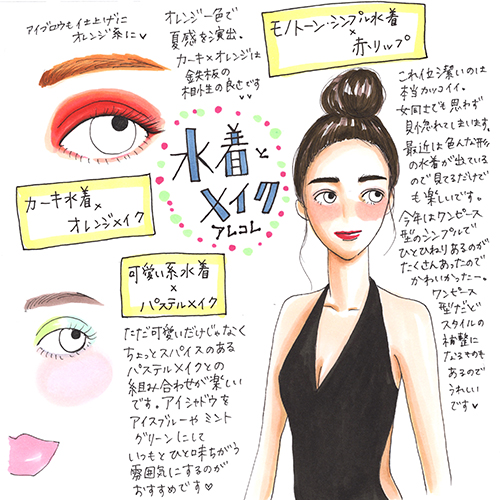 アイブロウも仕上げに
オレンジ系に♥
オレンジ一色で
夏感を演出。
カーキ×オレンジは
鉄板の
相性の良さです
♥♥
カーキ水着×
オレンジメイク
水着と
メイク
アレコレ
モノトーン・シンプル水着
×
赤リップ
これ位潔いのは
本当カッコイイ。
女同士でも思わず
見惚れてしまいます。
最近は色んな形
の水着が出ている
ので見てるだけで
も楽しいです。
今年はワンピース
型のシンプルで
ひとひねりあるのが
たくさんあったので
かわいかったー。
ワンピース
型だと
スタイルの
補整に
なるものも
あるので
うれしい
です♥
可愛い系水着
×
パステルメイク
ただ可愛いだけじゃなく
ちょっとスパイスのある
パステルメイクとの
組み合わせが楽しい
です。アイシャドウを
アイスブルーや ミント
グリーンにして
いつもとひと味ちがう
雰囲気にするのが
おすすめです♡